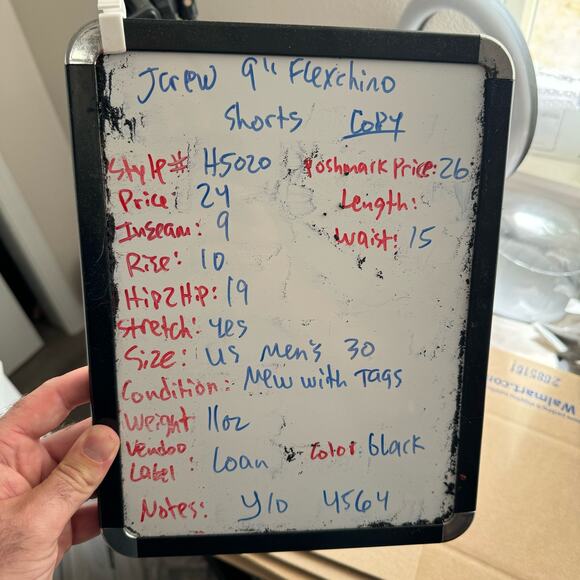 Jcrew 9" Flexchino
Shorts COPY
Style# H5020 Poshmark Price: 26
Price: 24 Length:
Inseam: 9 Waist: 15
Rise: 10
Hip2Hip: 19
Stretch: yes
Size: US Men's 30
Condition: New with Tags
Weight 11oz
Vendoo Label: Loan Color: black
Notes: Y10 4564
Walmart.com
2085161